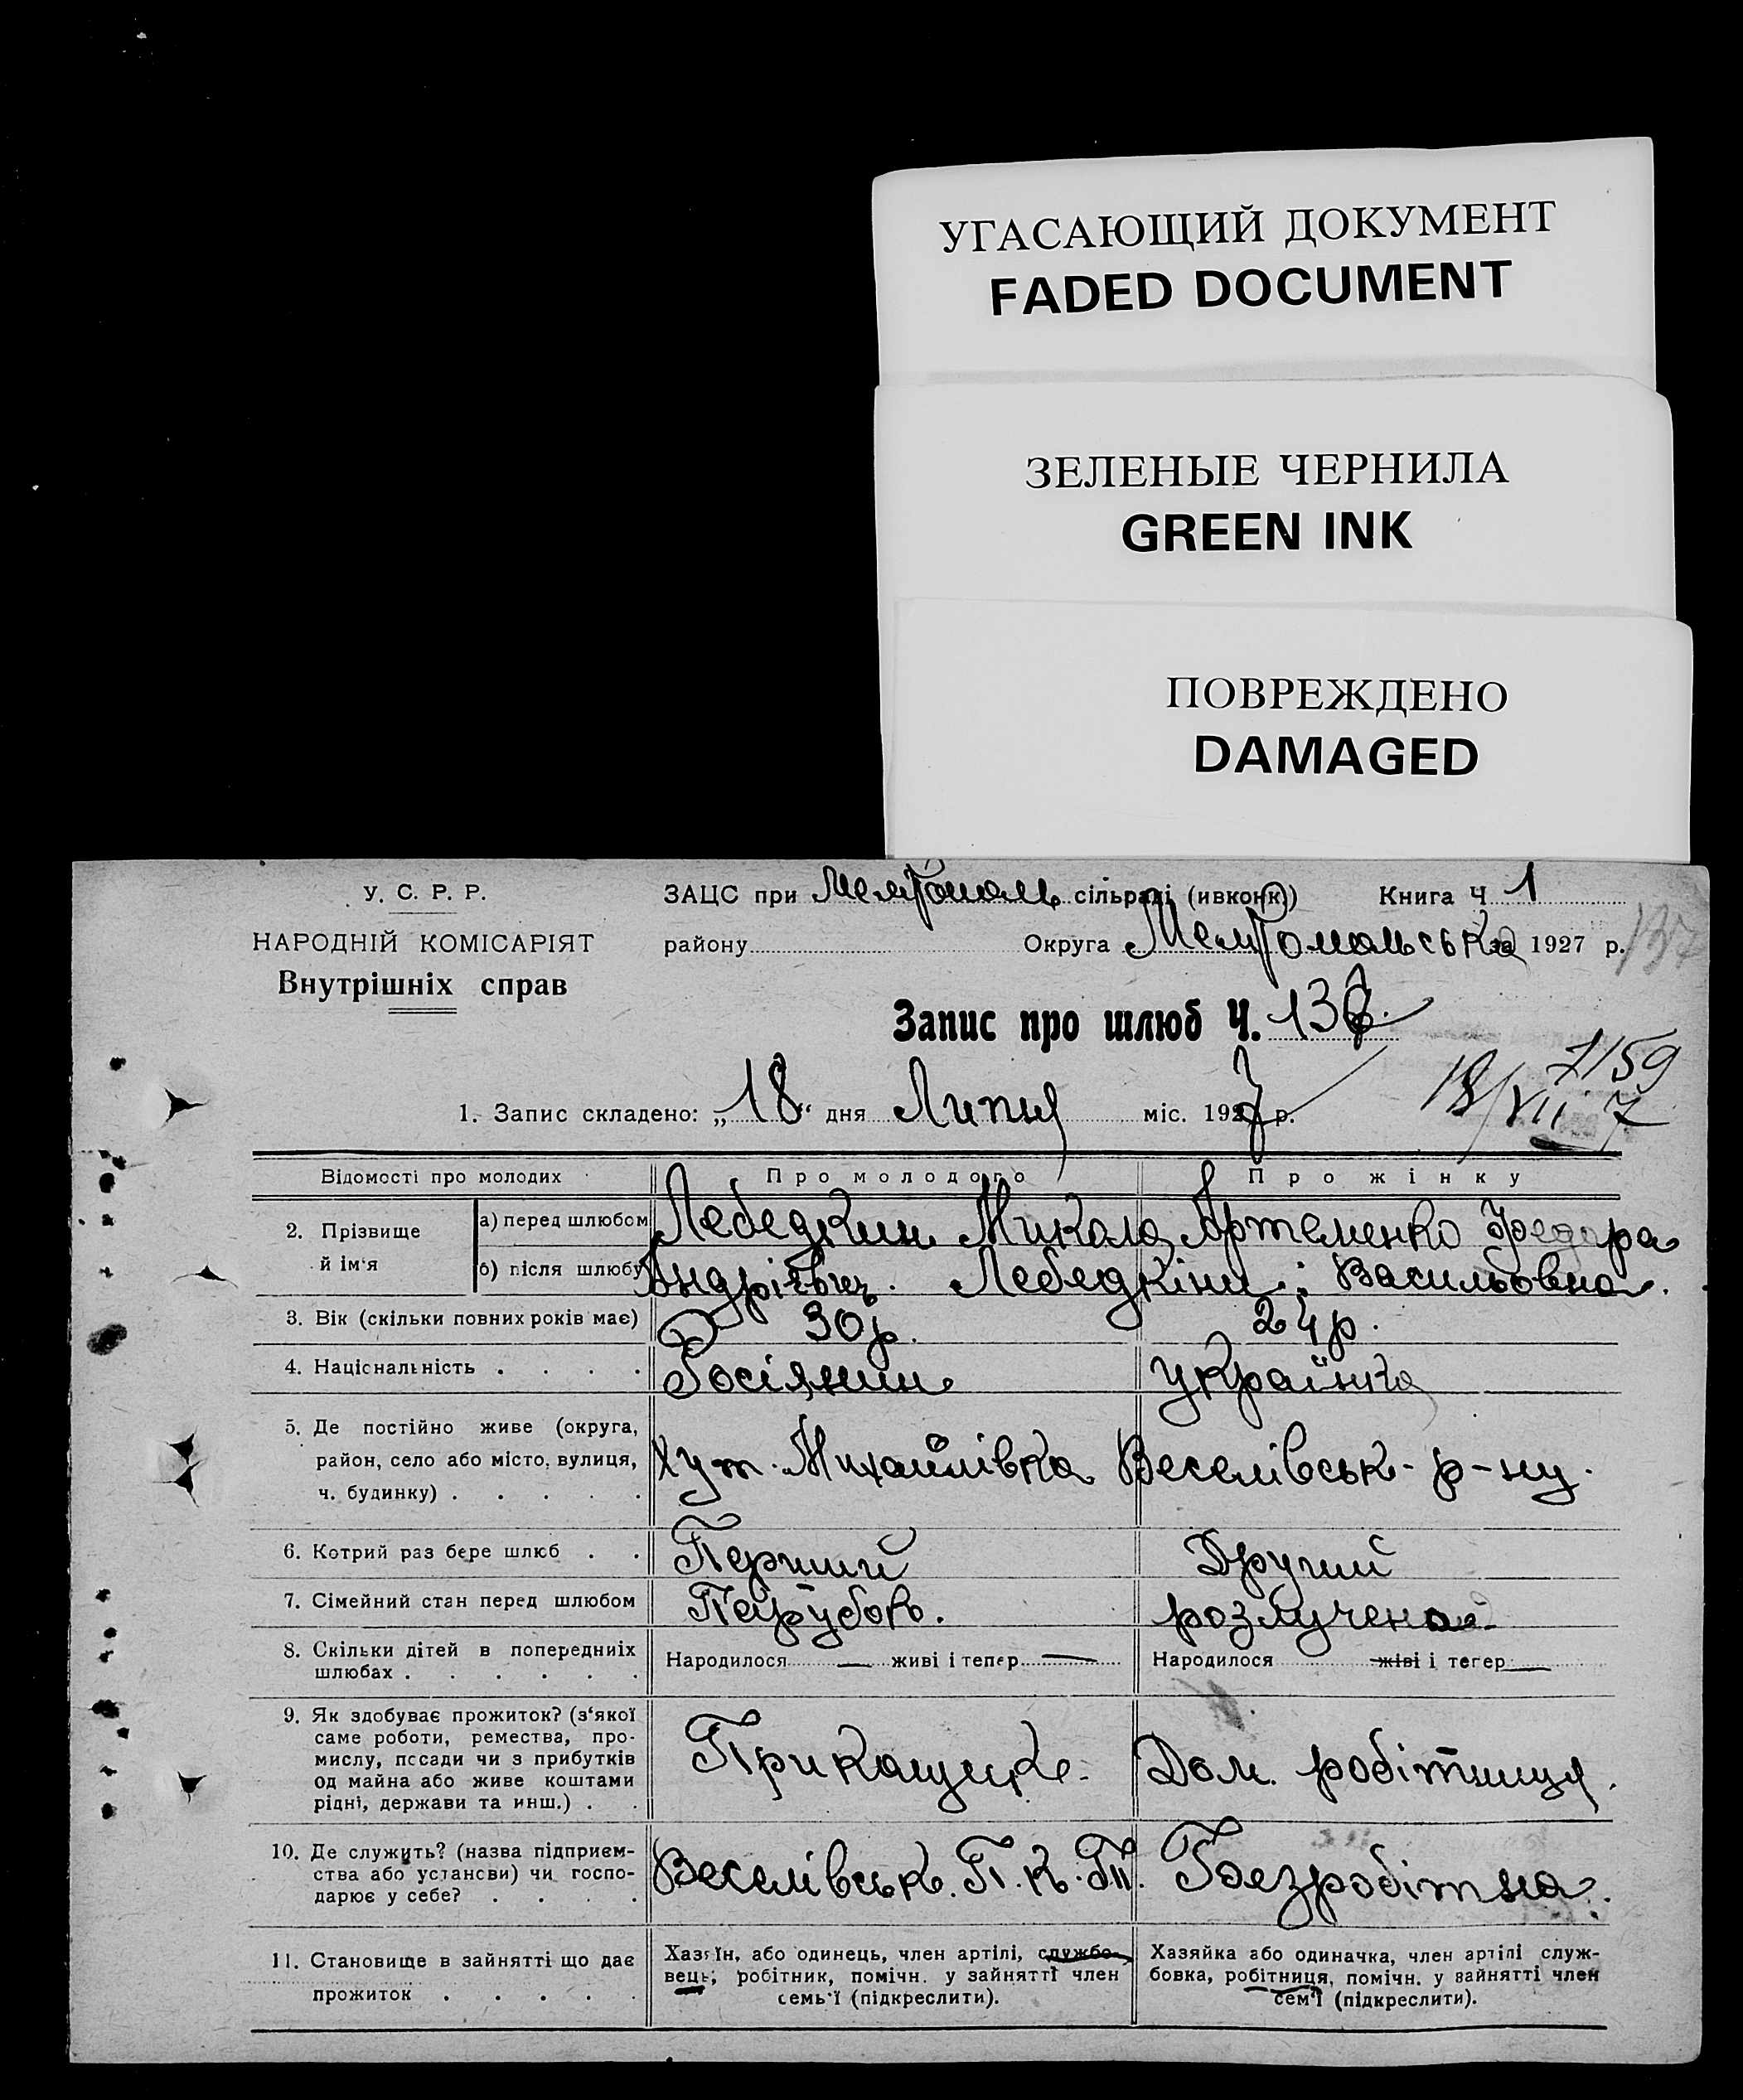 УГАСАЮЩИЙ ДОКУМЕНТ
FADED DOCUMENT
ЗЕЛЕНЫЕ ЧЕРНИЛА
GREEN INK
ПОВРЕЖДЕНО
DAMAGED
У. С. Р. Р.
НАРОДНІЙ КОМІСАРІЯТ
Внутрішніх справ
ЗАЦС при сільраді (ивконк.) Книга Ч 1
району Округа Мелітопольська 1927 р. 137
Запис про шлюб Ч.
7159
18/VII 7
1. Запис складено: „18“ дня Липня міс. 1927 р.
Відомості про молодих Про молодого Про жінку
2. Прізвище й ім'я
а) перед шлюбом Лебедкин Микола Артеменко Федора
б) після шлюбу Лебедкіни; Васильовна.
3. Вік (скільки повних років має) 30 р. 24 р.
4. Національність . . . . Росіянин Українка
5. Де постійно живе (округа,
район, село або місто, вулиця,
ч. будинку) . . . . .
Хут. Михайлівка Веселівськ. р-ну.
6. Котрий раз бере шлюб . . Перший Другий
7. Сімейний стан перед шлюбом Парубок. розлучена
8. Скільки дітей в попередниіх
шлюбах . . . . . .
Народилося — живі і тепер — Народилося живі і тепер —
9. Як здобуває прожиток? (з'якої
саме роботи, ремества, про-
мислу, посади чи з прибутків
од майна або живе коштами
рідні, держави та инш.) . .
Дом. робітниця.
10. Де служить? (назва підприєм-
ства або устансви) чи госпо-
дарює у себе? . . . .
Веселівськ. Безробітна.
11. Становище в зайнятті що дає
прожиток . . . . .
Хазяїн, або одинець, член артілі, службо-
вець, робітник, помічн. у зайнятті член
семь'ї (підкреслити).
Хазяйка або одиначка, член артілі служ-
бовка, робітниця, помічн. у зайнятті член
сем'ї (підкреслити).